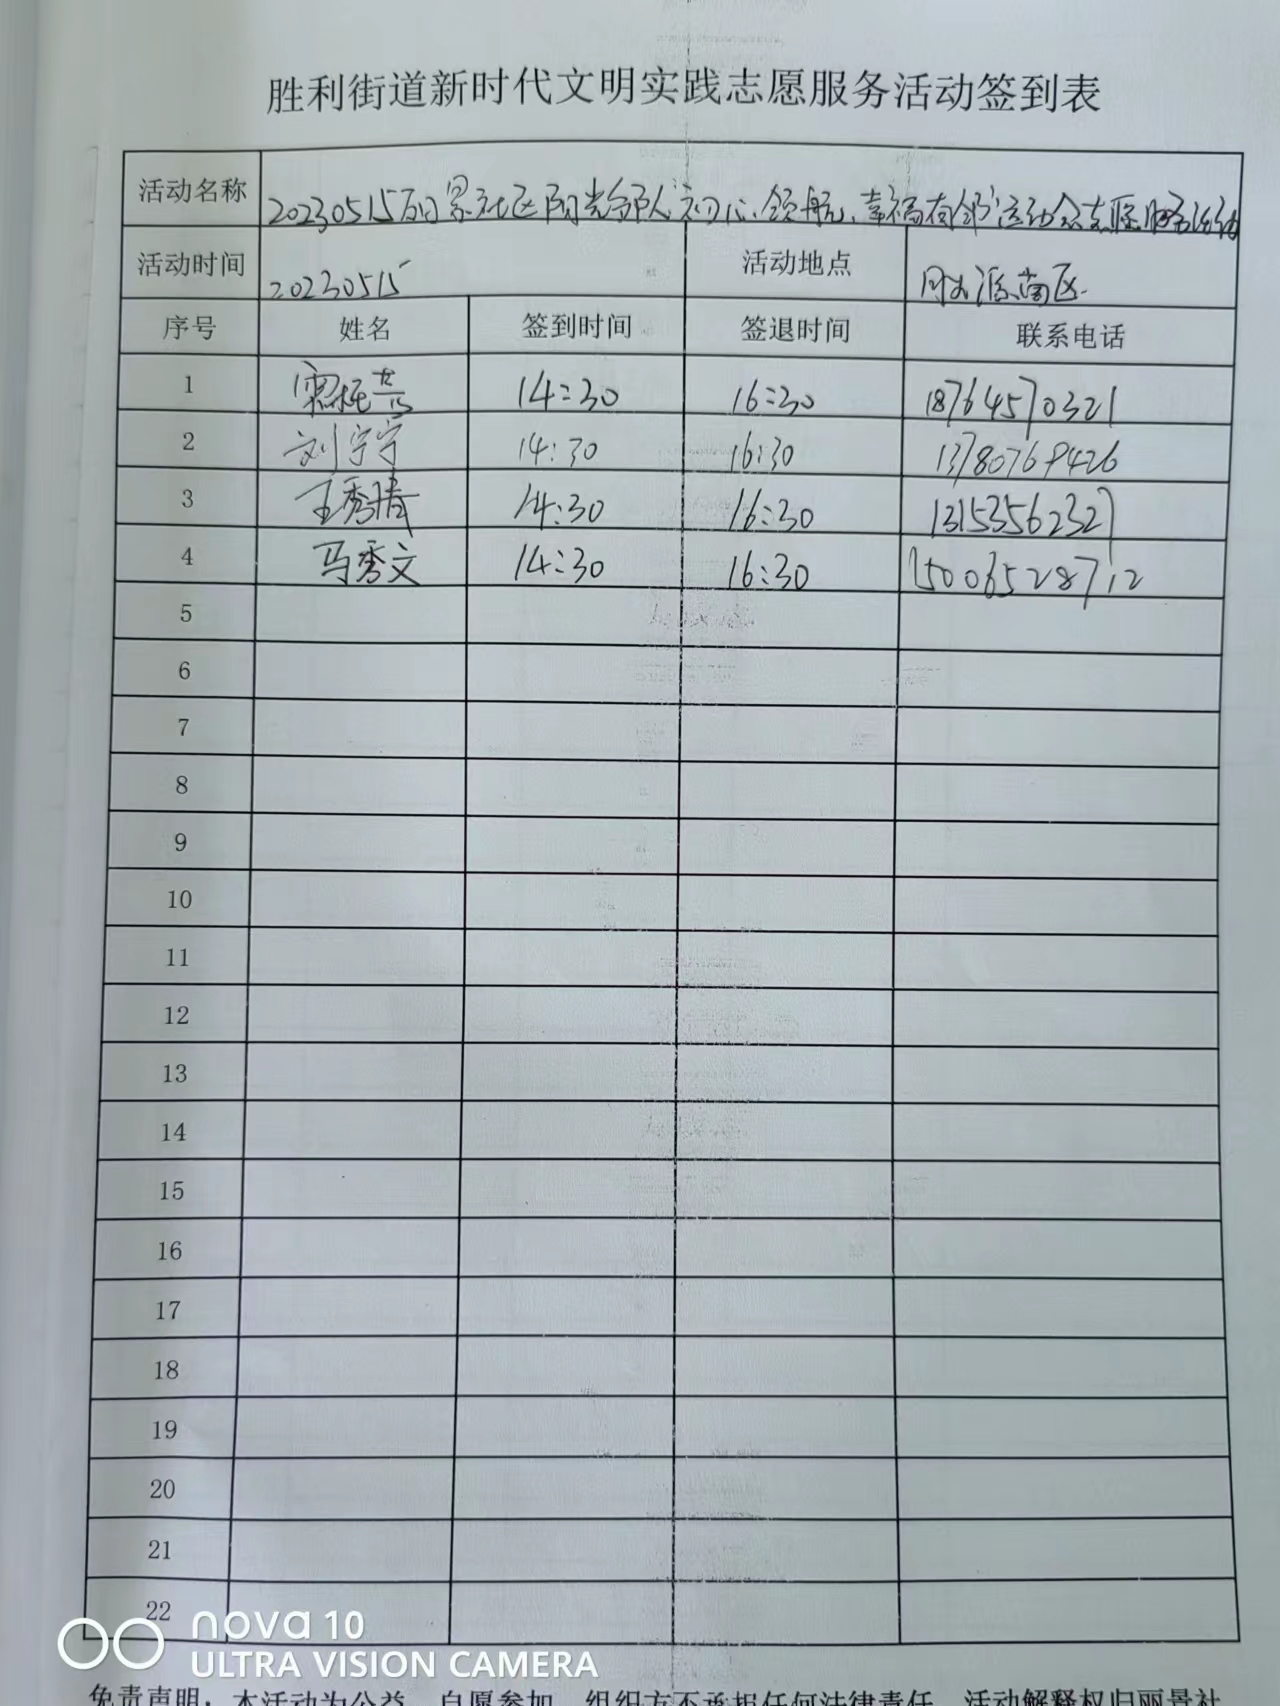 胜利街道新时代文明实践志愿服务活动签到表
活动名称 20230515丽景社区阳光邻"初心领航、幸福有邻"运动会志愿服务活动
活动时间 20230515 活动地点 南区
序号 姓名 签到时间 签退时间 联系电话
1 14:30 16:30 18764570321
2 刘宁宁 14:30 16:30 13780769426
3 王秀清 14:30 16:30 13153562327
4 马秀文 14:30 16:30 15006528712
5
6
7
8
9
10
11
12
13
14
15
16
17
18
19
20
21
22
nova 10
ULTRA VISION CAMERA
免责声明：本活动为公益、自愿参加，组织方不承担任何法律责任，活动解释权归丽景社